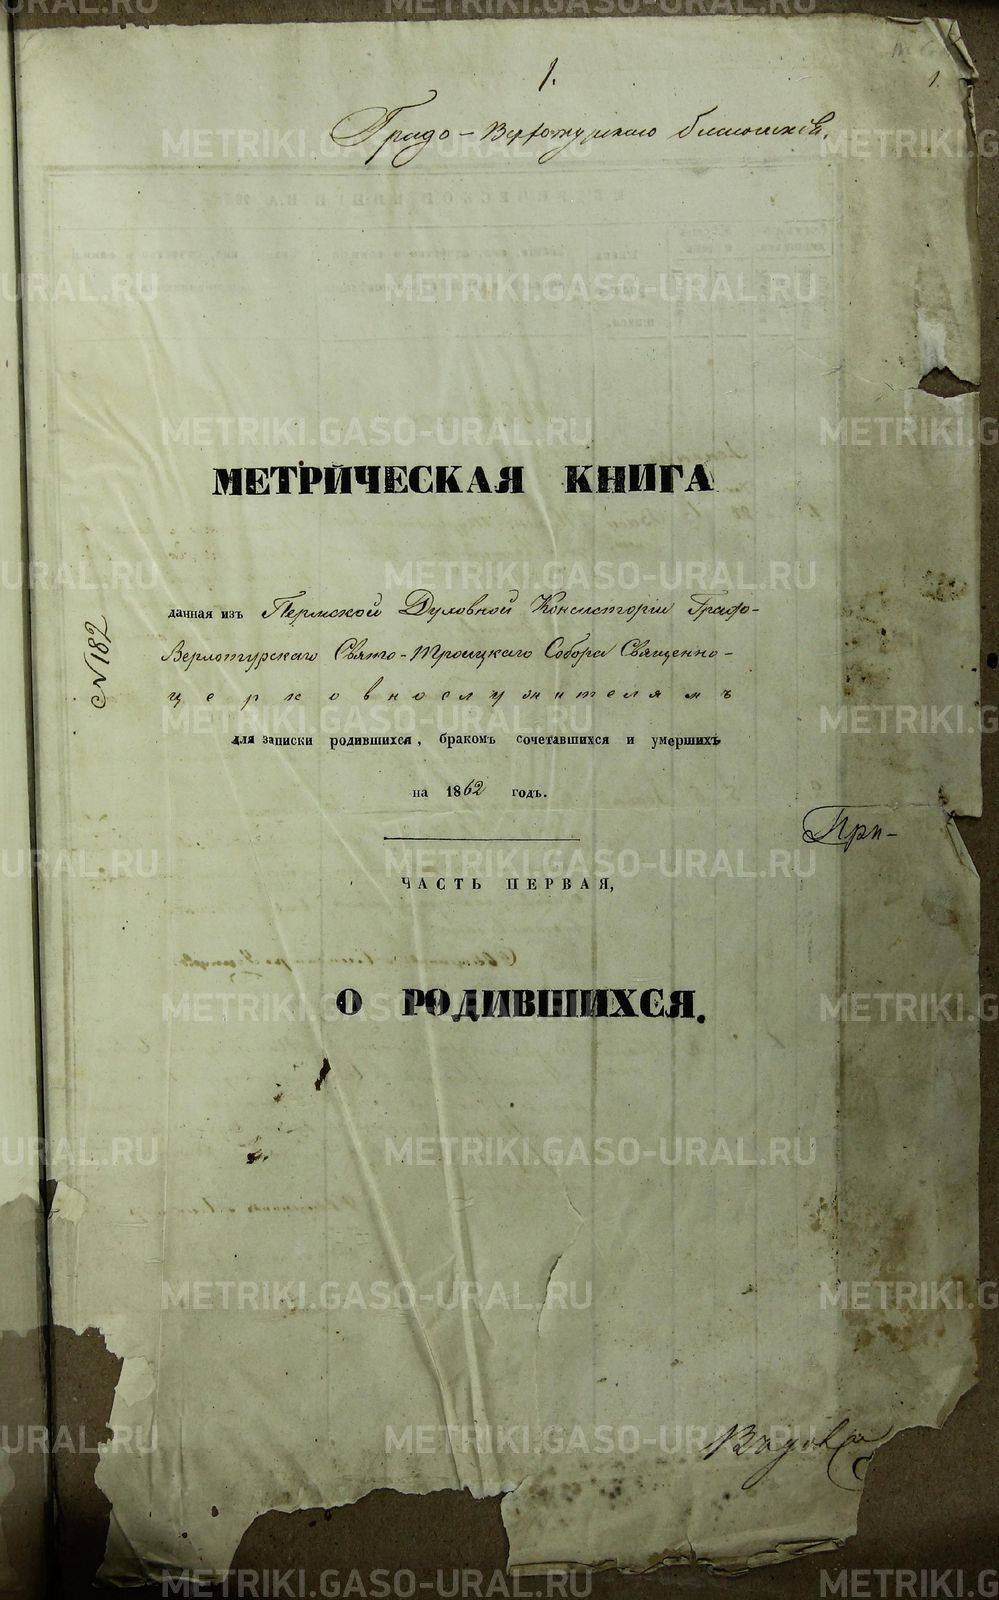 1.
1.
Градо-Верхотурскаго
МЕТРИЧЕСКАЯ КНИГА
данная изъ Пермской Духовной Консисторіи Градо-
Верхотурскаго Свято-Троицкаго Собора Священно-
церковнослужителямъ
№ 182
для записки родившихся, бракомъ сочетавшихся и умершихъ
на 1862 годъ.
При-
ЧАСТЬ ПЕРВАЯ,
О РОДИВШИХСЯ.
METRIKI.GASO-URAL.RU